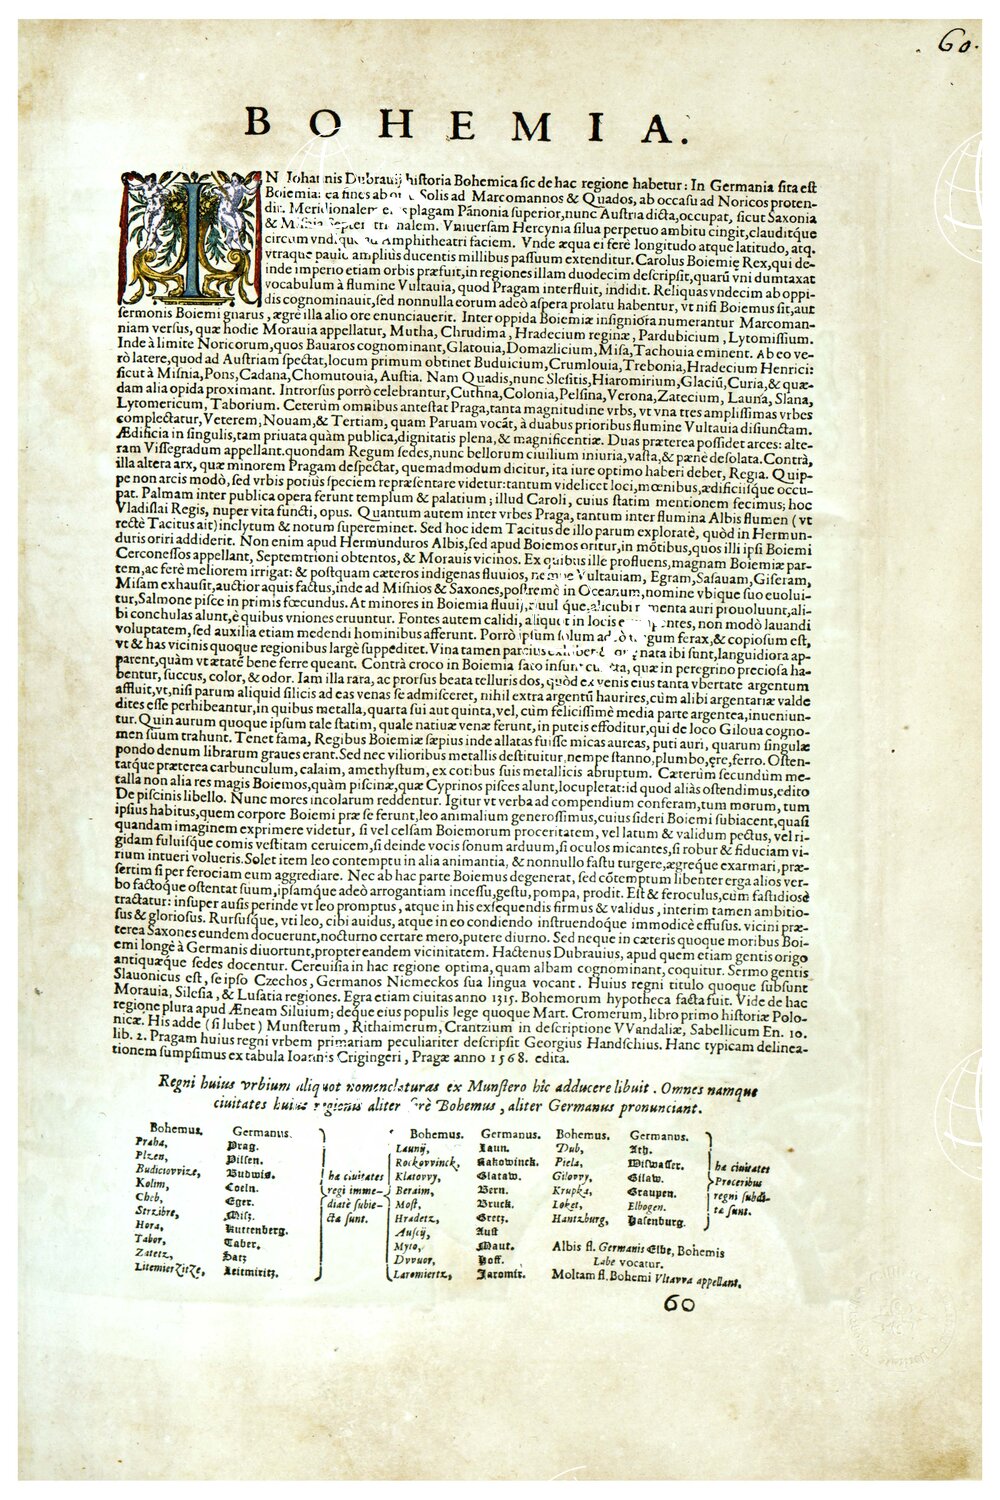 60.
BOHEMIA.
IN Johannis Dubrauij historia Bohemica sic de hac regione habetur: In Germania sita est
Boiemia: ea fines ab Solis ad Marcomannos & Quados, ab occasu ad Noricos proten-
dit. plagam Pãnonia superior, nunc Austria dicta, occupat, sicut Saxonia
& Misnia Vniuersam Hercynia silua perpetuo ambitu cingit, clauditque
circum vndique Amphitheatri faciem. Vnde æqua ei ferè longitudo atque latitudo, atq.
vtraque paulò ampliùs ducentis millibus passuum extenditur. Carolus Boiemię Rex, qui de-
inde imperio etiam orbis præfuit, in regiones illam duodecim descripsit, quarũ vni dumtaxat
vocabulum à flumine Vultauia, quod Pragam interfluit, indidit. Reliquas vndecim ab oppi-
dis cognominauit, sed nonnulla eorum adeò aspera prolatu habentur, vt nisi Boiemus sit, aut
sermonis Boiemi gnarus, ægre illa alio ore enunciauerit. Inter oppida Boiemiæ insigniora numerantur Marcoman-
niam versus, quæ hodie Morauia appellatur, Mutha, Chrudima, Hradecium reginæ, Pardubicium, Lytomissium.
Inde à limite Noricorum, quos Bauaros cognominant, Glatouia, Domazlicium, Misa, Tachouia eminent. Ab eo ve-
rò latere, quod ad Austriam spectat, locum primum obtinet Buduicium, Crumlouia, Trebonia, Hradecium Henrici:
sicut à Misnia, Pons, Cadana, Chomutouia, Austia. Nam Quadis, nunc Slesitis, Hiaromirium, Glaciũ, Curia, & quæ-
dam alia opida proximant. Introrsus porrò celebrantur, Cuthna, Colonia, Pelsina, Verona, Zatecium, Launa, Slana,
Lytomericum, Taborium. Ceterùm omnibus antestat Praga, tanta magnitudine vrbs, vt vna tres amplissimas vrbes
complectatur, Veterem, Nouam, & Tertiam, quam Paruam vocãt, à duabus prioribus flumine Vultauia disiunctam.
Ædificia in singulis, tam priuata quàm publica, dignitatis plena, & magnificentiæ. Duas præterea possidet arces: alte-
ram Vissegradum appellant, quondam Regum sedes, nunc bellorum ciuilium iniuria, vasta, & pæne desolata. Contrà,
illa altera arx, quæ minorem Pragam despectat, quemadmodum dicitur, ita iure optimo haberi debet, Regia. Quip-
pe non arcis modò, sed vrbis potiùs speciem repræsentare videtur: tantum videlicet loci, mœnibus, ædificiisque occu-
pat. Palmam inter publica opera ferunt templum & palatium; illud Caroli, cuius statim mentionem fecimus; hoc
Vladislai Regis, nuper vita functi, opus. Quantum autem inter vrbes Praga, tantum inter flumina Albis flumen (vt
rectè Tacitus ait) inclytum & notum supereminet. Sed hoc idem Tacitus de illo parum exploratè, quòd in Hermun-
duris oriri addiderit. Non enim apud Hermunduros Albis, sed apud Boiemos oritur, in mõtibus, quos illi ipsi Boiemi
Cerconessos appellant, Septemtrioni obtentos, & Morauis vicinos. Ex quibus ille profluens, magnam Boiemiæ par-
tem, ac ferè meliorem irrigat: & postquam cæteros indigenas fluuios, nempe Vultauiam, Egram, Sasauam, Giseram,
Misam exhausit, auctior aquis factus, inde ad Misnios & Saxones, postremò in Oceanum, nomine vbique suo euolui-
tur, Salmone pisce in primis fœcundus. At minores in Boiemia fluuij, simul quę, alicubi ramenta auri prouoluunt, ali-
bi conchulas alunt, è quibus vniones eruuntur. Fontes autem calidi, aliquot in locis non modò lauandi
voluptatem, sed auxilia etiam medendi hominibus afferunt. Porrò ipsum solum ad frugum ferax, & copiosum est,
vt & has vicinis quoque regionibus largè suppeditet. Vina tamen parcius nata ibi sunt, languidiora ap-
parent, quàm vt ætatẽ bene ferre queant. Contrà croco in Boiemia sato insunt cuncta, quæ in peregrino preciosa ha-
bentur, succus, color, & odor. Iam illa rara, ac prorsus beata telluris dos, quòd ex venis eius tanta vbertate argentum
affluit, vt, nisi parum aliquid silicis ad eas venas se admisceret, nihil extra argentũ haurires, cùm alibi argentariæ valde
dites esse perhibeantur, in quibus metalla, quarta sui aut quinta, vel, cùm felicissimè media parte argentea, inueniun-
tur. Quin aurum quoque ipsum tale statim, quale natiuæ venæ ferunt, in puteis effoditur, qui de loco Giloua cogno-
men suum trahunt. Tenet fama, Regibus Boiemiæ sæpius inde allatas fuisse micas aureas, puti auri, quarum singulæ
pondo denum librarum graues erant. Sed nec vilioribus metallis destituitur, nempe stanno, plumbo, ęre, ferro. Osten-
tatque præterea carbunculum, calaim, amethystum, ex cotibus suis metallicis abruptum. Cæterùm secundùm me-
talla non alia res magis Boiemos, quàm piscinæ, quæ Cyprinos pisces alunt, locupletat: id quod aliàs ostendimus, edito
De piscinis libello. Nunc mores incolarum reddentur. Igitur vt verba ad compendium conferam, tum morum, tum
ipsius habitus, quem corpore Boiemi præ se ferunt, leo animalium generosissimus, cuius sideri Boiemi subiacent, quasi
quandam imaginem exprimere videtur, si vel celsam Boiemorum proceritatem, vel latum & validum pectus, vel ri-
gidam fuluisque comis vestitam ceruicem, si deinde vocis sonum arduum, si oculos micantes, si robur & fiduciam vi-
rium intueri volueris. Solet item leo contemptu in alia animantia, & nonnullo fastu turgere, ægreque exarmari, præ-
sertim si per ferociam eum aggrediare. Nec ab hac parte Boiemus degenerat, sed cõtemptum libenter erga alios ver-
bo factoque ostentat suum, ipsamque adeò arrogantiam incessu, gestu, pompa, prodit. Est & feroculus, cùm fastidiosè
tractatur: insuper ausis perinde vt leo promptus, atque in his exsequendis firmus & validus, interim tamen ambitio-
sus & gloriosus. Rursusque, vti leo, cibi auidus, atque in eo condiendo instruendoque immodicè effusus. vicini præ-
terea Saxones eundem docuerunt, nocturno certare mero, putere diurno. Sed neque in cæteris quoque moribus Boi-
emi longè à Germanis diuortunt, propter eandem vicinitatem. Hactenus Dubrauius, apud quem etiam gentis origo
antiquæque sedes docentur. Cereuisia in hac regione optima, quam albam cognominant, coquitur. Sermo gentis
Slauonicus est, se ipso Czechos, Germanos Niemeckos sua lingua vocant. Huius regni titulo quoque subsunt
Morauia, Silesia, & Lusatia regiones. Egra etiam ciuitas anno 1315. Bohemorum hypotheca facta fuit. Vide de hac
regione plura apud Æneam Siluium; deque eius populis lege quoque Mart. Cromerum, libro primo historiæ Polo-
nicæ. His adde (si lubet) Munsterum, Rithaimerum, Crantzium in descriptione VVandaliæ, Sabellicum En. 10.
lib. 2. Pragam huius regni vrbem primariam peculiariter descripsit Georgius Handschius. Hanc typicam delinea-
tionem sumpsimus ex tabula Ioannis Crigingeri, Pragæ anno 1568. edita.
Regni huius vrbium aliquot nomenclaturas ex Munstero hîc adducere libuit. Omnes namque
ciuitates huius regionis aliter ferè Bohemus, aliter Germanus pronunciant.
Bohemus. Germanus. Bohemus. Germanus. Bohemus. Germanus.
Praha, Prag. Launij, Laun. Dub, Ath.
Plzen, Pilsen. Rockovvinck, Rakowinck. Piela, Wiswasser.
Budiciovvize, Budwis. Klatovvy, Glataw. Gilovvy, Gilaw.
Kolim, Coeln. Beraim, Bern. Krupka, Graupen.
Cheb, Eger. Most, Bruck. Loket, Elbogen.
Strzibre, Misz. Hradetz, Gretz. Hantzburg, Hasenburg.
Hora, Kuttenberg. Auscij, Aust
Tabor, Taber. Myto, Maut.
Zatetz, Satz Dvvuor, Hoff.
LitemierZitZe, Leitmiritz. Laromiertz, Jaromir.
hæ ciuitates
regi imme-
diatè subie-
ctæ sunt.
hæ ciuitates
Proceribus
regni subdi-
tæ sunt.
Albis fl. Germanis Elbe, Bohemis
Labe vocatur.
Moltam fl. Bohemi Vltavva appellant.
60